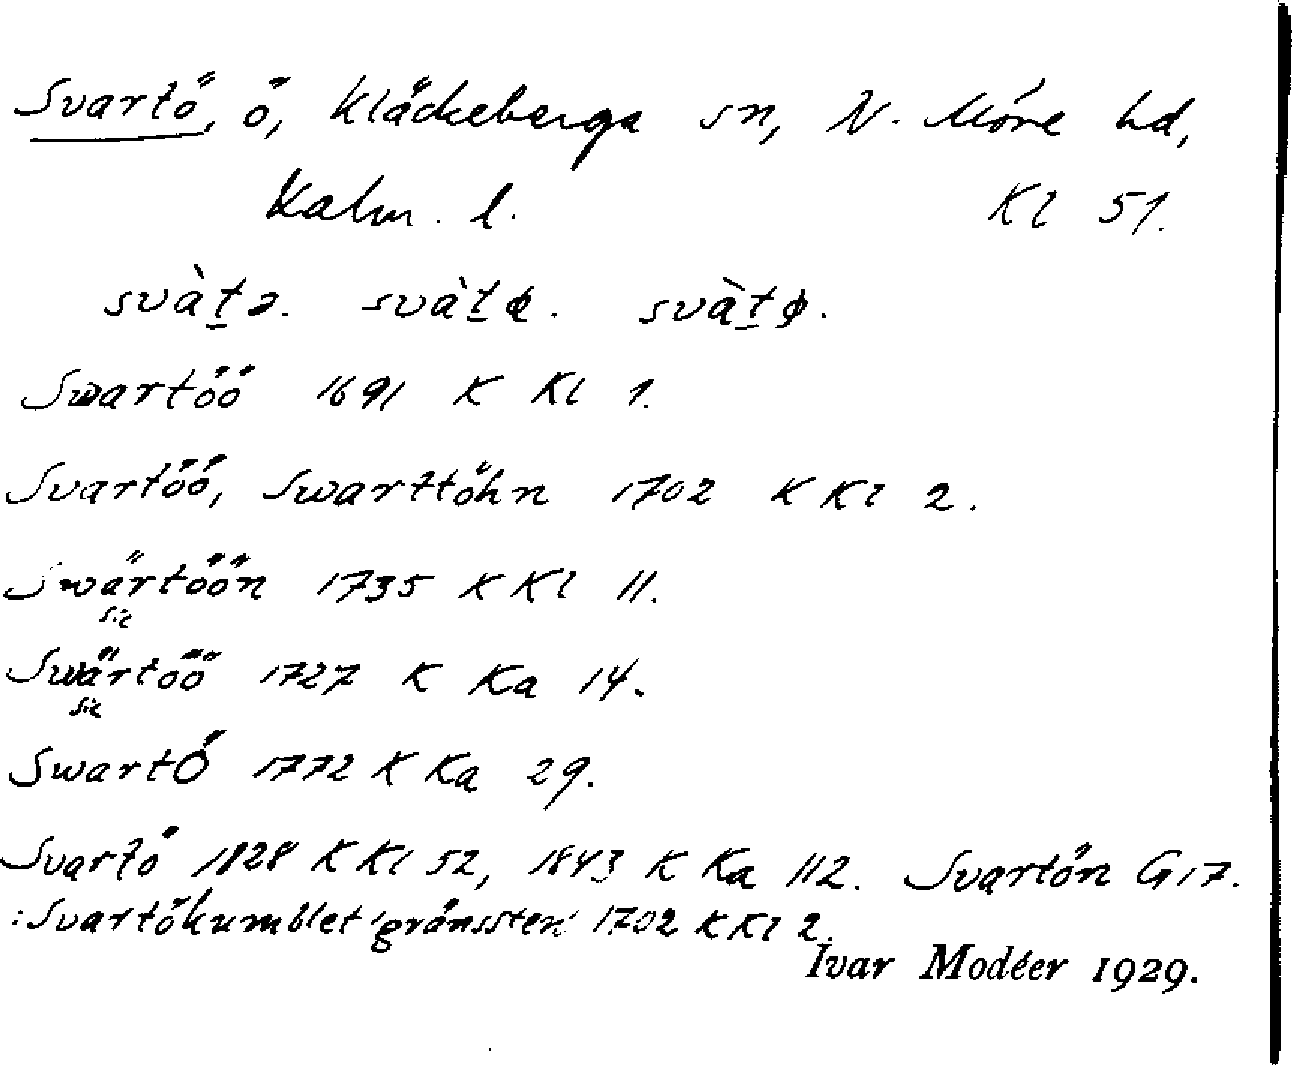 Svartö, ö, Kläckeberga sn, N. Möre hd,
Kalm. l. Kl 51.
svàṯə. svàṯ. svàṯø.
Swartöö 1691 K Kl 1.
Svartöö, Swarttöhn 1702 K Kl 2.
Swärtöön 1735 K Kl 11.
sic
Swärtöö 1727 K Ka 14.
sic
SwartÖ 1772 K Ka 29.
Svartö 1828 K Kl 52, 1843 K Ka 112. Svartön G 17.
: Svartökumblet 'gränssten' 1702 K Kl 2.
Ivar Modéer 1929.